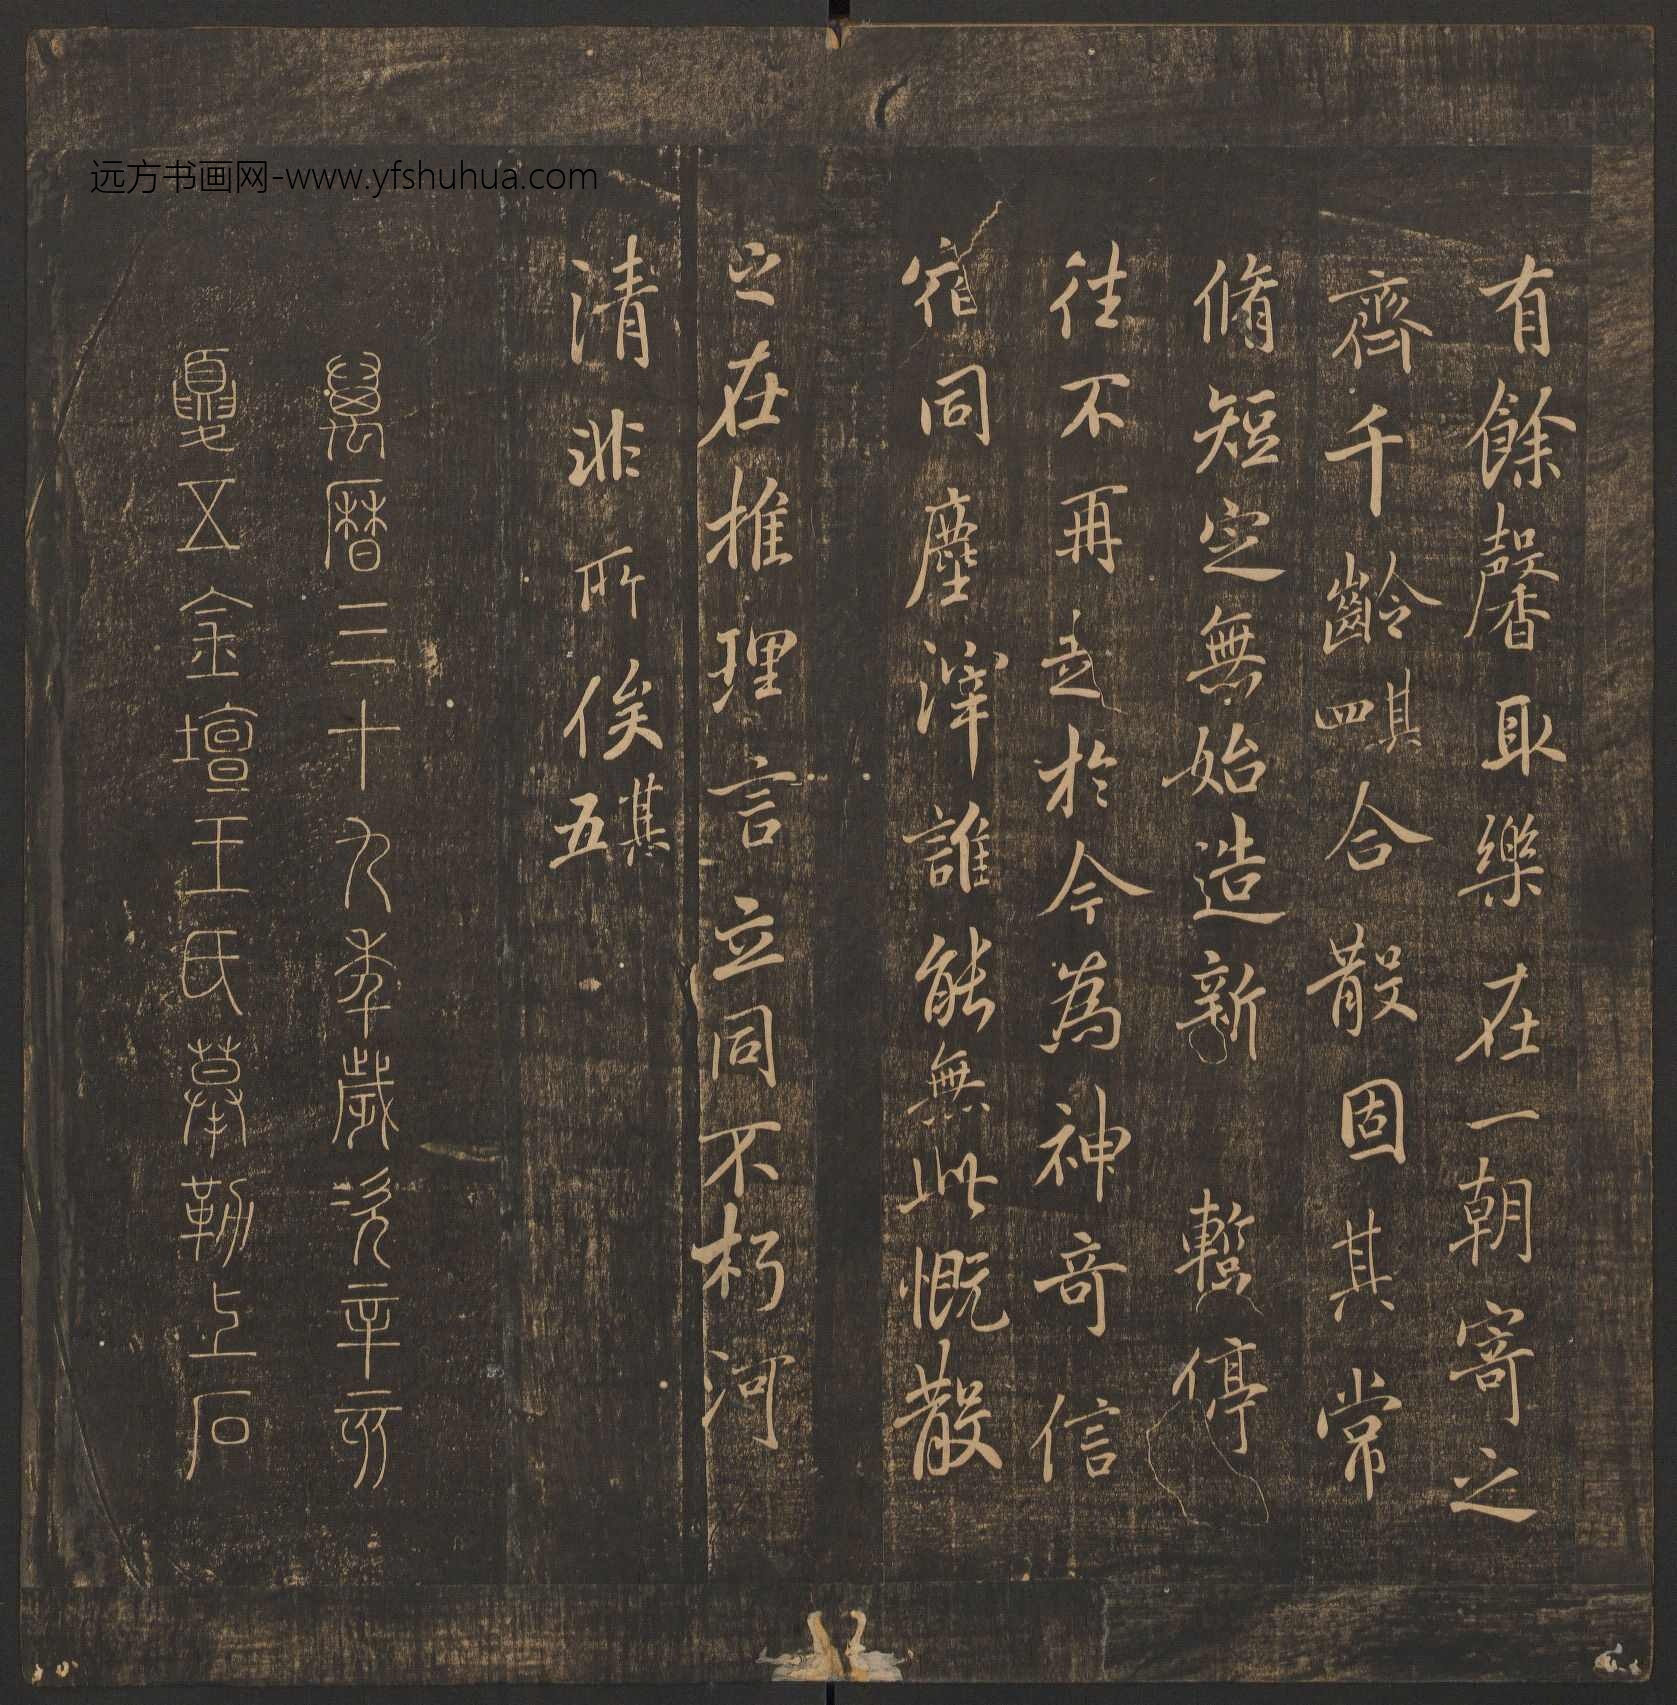 远方书画网-www.yfshuhua.com
有餘馨取樂在一朝寄之
齊千齡 其四 合散固其常
脩短定無始造新 暫停
往不再起於今為神奇信
宿同塵滓誰能無此慨散
之在推理言立同不朽河
清非所俟 其五
萬曆三十九年歲次辛亥
夏五金壇王氏摹勒上石